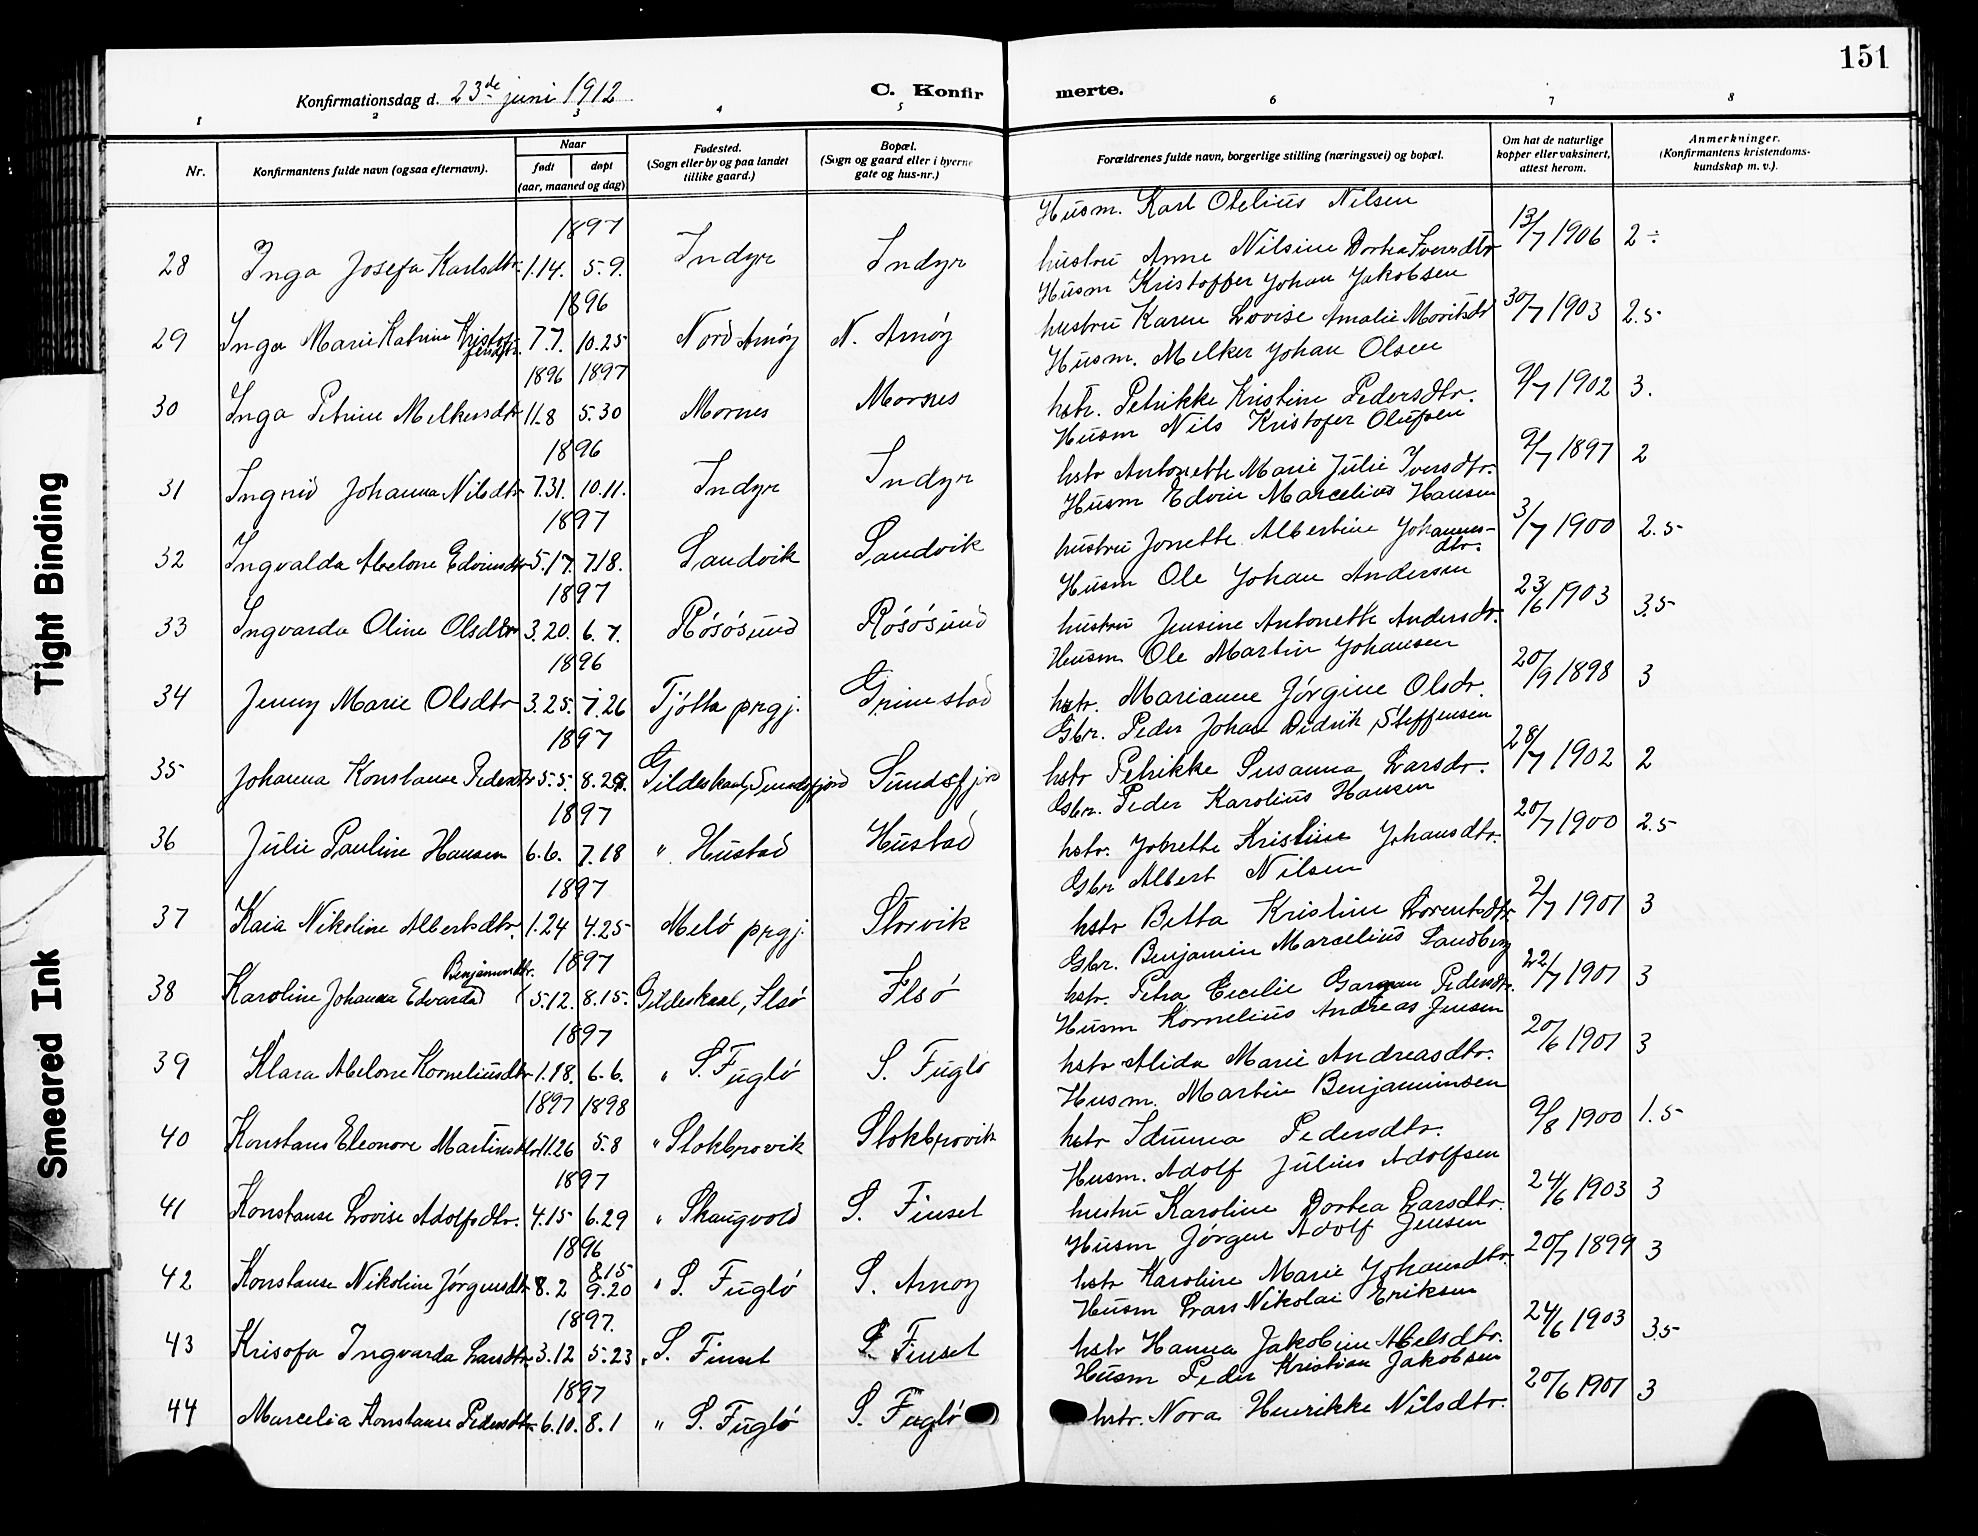 151
Konfirmationsdag d. 23de juni 1912
C. Konfirmerte.
1 2 3 4 5 6 7 8
Nr.
Konfirmantens fulde navn (ogsaa efternavn).
Naar
født
døpt
(aar, maaned og dag)
Fødested.
(Sogn eller by og paa landet
tillike gaard.)
Bopæl.
(Sogn og gaard eller i byerne
gate og hus-nr.)
Forældrenes fulde navn, borgerlige stilling (næringsvei) og bopæl.
Om hat de naturlige
kopper eller vaksinert,
attest herom.
Anmerkninger.
(Konfirmantens kristendoms-
kundskap m. v.).
1897 Husm. Karl Otelius Nilsen
28 Inga Josefa Karlsdtr. 1.14. 5.9. Indyr Indyr hustru Anne Nilsine Dortea Iversdtr 13/7 1906 2÷
1896 Husm Kristoffer Johan Jakobsen
29 Inga Marie Katrine 7.7. 10.25 Nord Arnøy N. Arnøy hustru Karen Lovise Amalie Moritsdr 30/7 1903 2.5
1896 1897 Husm. Melker Johan Olsen
30 Inga Petrine Melkersdtr 11.8 5.30 Mornes Mornes hstr. Petrikke Kristine Pedersdtr. 9/7 1902 3.
1896 Husm Nils Kristofer Olufsen
31 Ingrid Johanna Nilsdtr 7.31. 10.11. Indyr Indyr hstr Antonette Marie Julie Iversdtr. 9/7 1897 2
1897 Husm Edvin Marcelius Hansen
32 Ingvalda Abelone Edvinsdtr 5.17. 7.18. Sandvik Sandvik hustru Jonette Albertine Johannes-
dtr. 3/7 1900 2.5
1897 Husm Ole Johan Andersen
33 Ingvarda Oline Olsdtr 3.20. 6.7. Røsøsund Røsøsund hustru Jensine Antonette Andersdr. 23/6 1903 3.5
1896 Husm Ole Martin Johansen
34 Jenny Marie Olsdtr 3.25. 7.26 Tjøtta prgj. Grimstad hstr. Marianne Jørgine Olsdr. 20/9 1898 3
1897 Gbr. Peder Johan Didrik Steffensen
35 Johanna Konstanse Pedersdtr 5.5. 8.29. Gildeskaal, Sundsfjord Sundsfjord hstr Petrikke Susanna Larsdr. 28/7 1902 2
1897 Gbr. Peder Karolius Hansen
36 Julie Pauline Hansen 6.6. 7.18 " Hustad Hustad hstr. Kristine Johansdtr. 20/7 1900 2.5
1897 Gbr Albert Nilsen
37 Kaia Nikoline Albertsdtr. 1.24 4.25 Melø prgj. Storvik hstr Betta Kristine Lorentsdtr 2/7 1901 3
Benjaminsdtr. 1897 Gbr. Benjamin Marcelius Sandberg
38 Karoline Johanna Edvarda 5.12. 8.15. Gildeskaal, Flsø Flsø hstr. Petra Cecilie Garman Pedersdtr. 22/7 1901 3
1897 Husm Kornelius Andreas Jensen
39 Klara Abelone Korneliusdtr 1.18. 6.6. " S. Fuglø S. Fuglø hstr Alida Marie Andreasdtr. 20/6 1901 3
1897 1898 Husm. Martin Benjaminsen
40 Konstans Eleonore Martinsdtr 11.26 5.8 " Stokbrovik Stokbrovik hstr Idunna Pedersdtr. 9/8 1900 1.5
1897 Husm. Adolf Julius Adolfsen
41 Konstanse Lovise Adolfsdtr. 4.15 6.29 " Skaugvold S. Finset hustru Karoline Dortea Larsdtr. 24/6 1903 3
1896 8.15 Husm Jørgen Adolf Jensen
42 Konstanse Nikoline Jørgensdtr 8.2 9.20 " S. Fuglø S. Arnøy hstr Karoline Marie Johansdtr. 20/7 1899 3
1897. Husm Lars Nikolai Eriksen
43 Krisofa Ingvarda Larsdtr 3.12 5.23 " S. Finset S. Finset hstr Hanna Jakobine Abelsdtr. 24/6 1903 3.5
1897 Husm Peder Kristian Jakobsen
44 Marcelia Konstanse Pedersdtr 6.10. 8.1 " S. Fuglø S. Fuglø hstr. Nora Henrikke Nilsdtr. 20/6 1901 3
Tight Binding
Smeared Ink